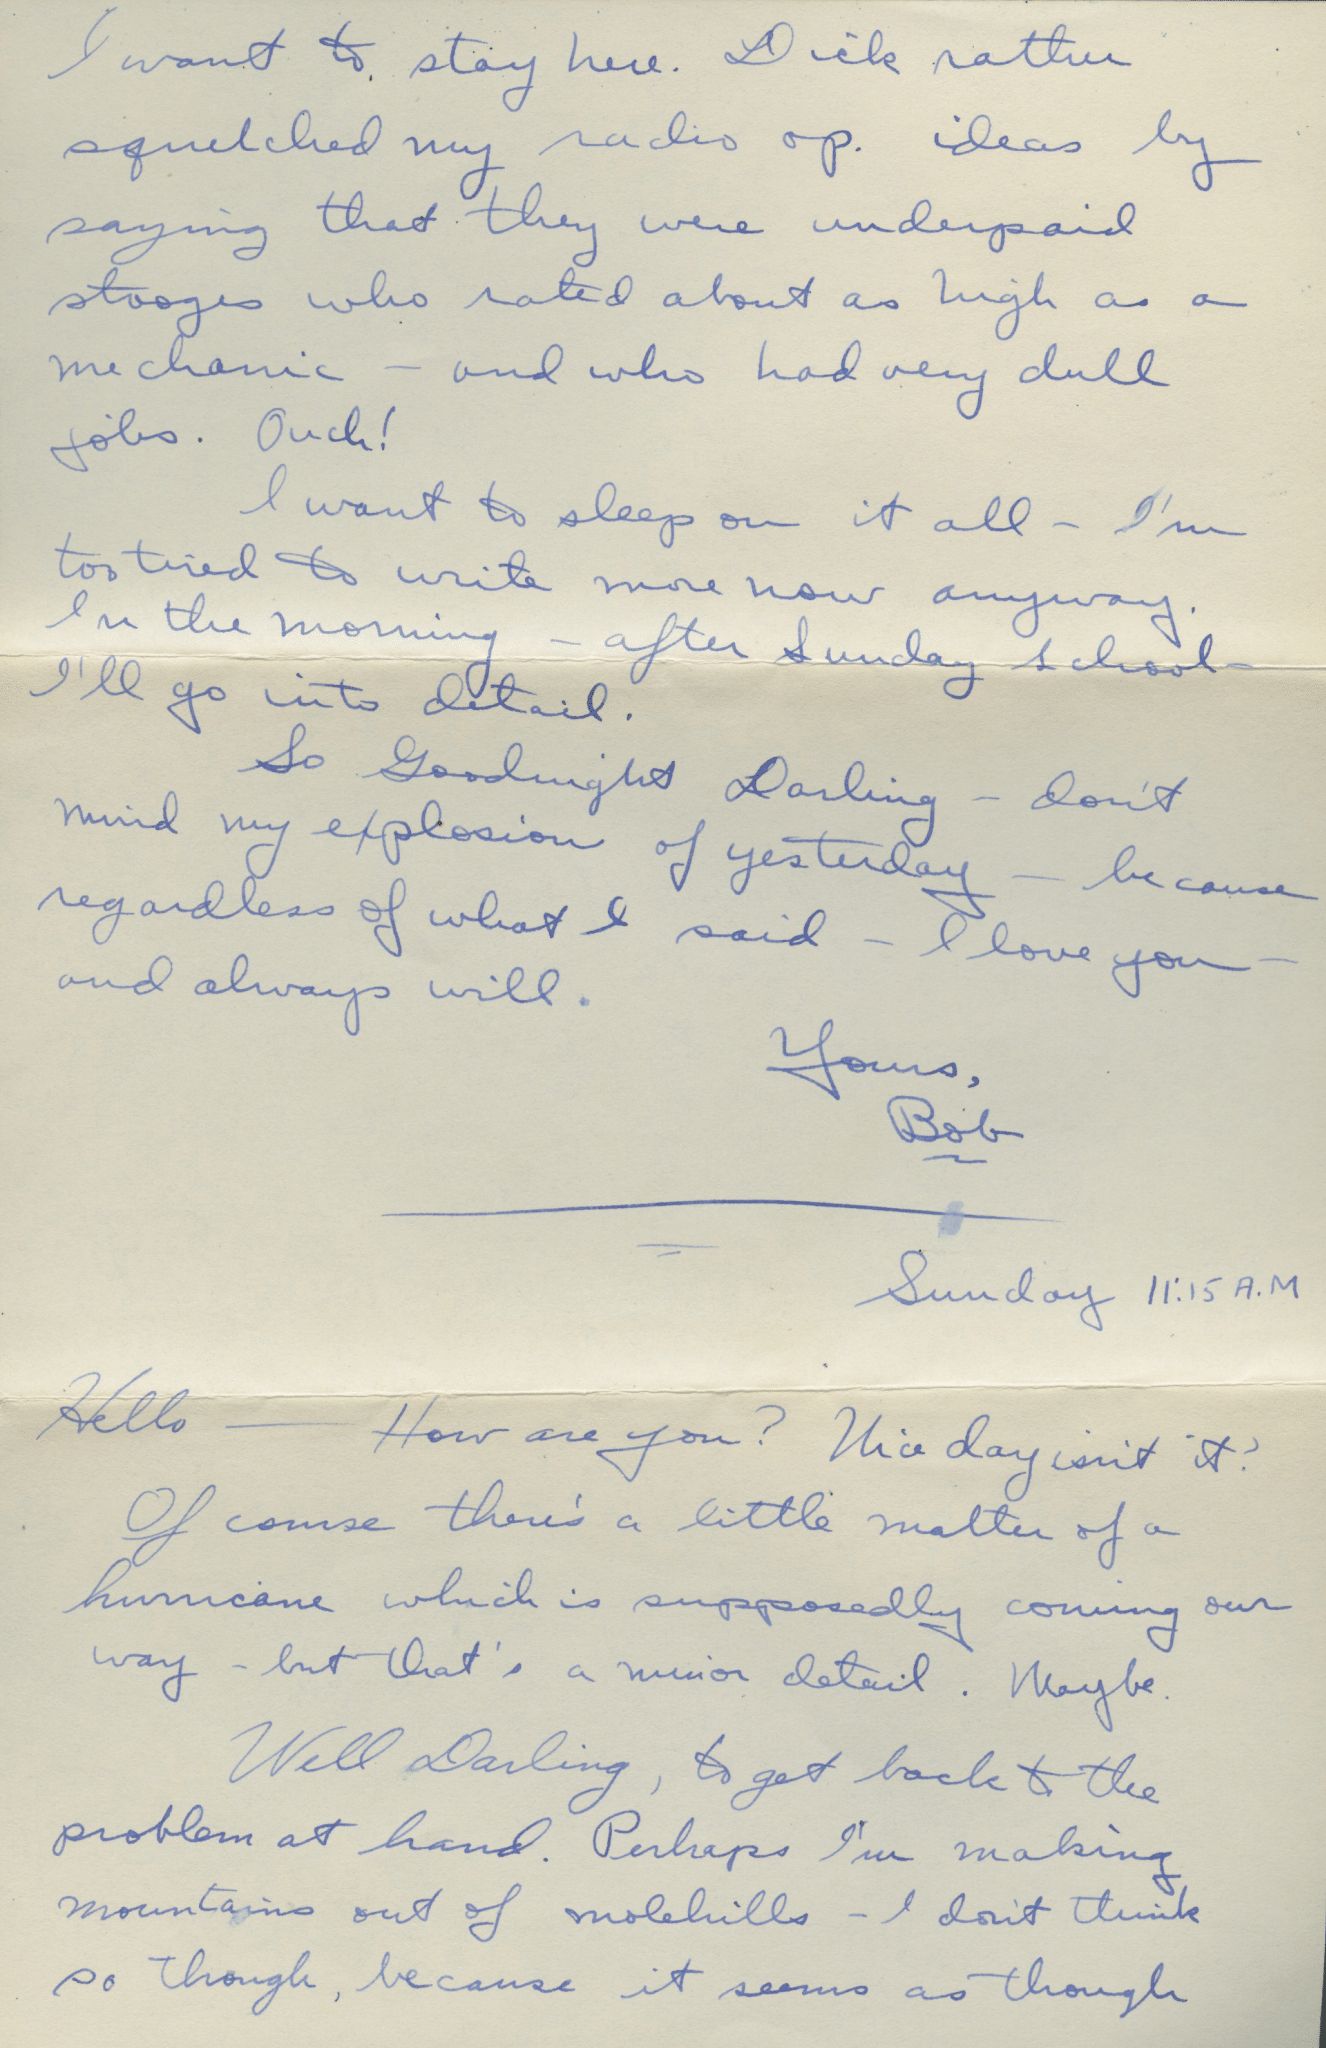 I want to stay here. Dick rather
squelched my radio op. ideas by
saying that they were underpaid
stooges who rated about as high as a
mechanic — and who had very dull
jobs. Ouch!
I want to sleep on it all — I'm
too tired to write more now anyway.
In the morning — after Sunday school —
I'll go into detail.
So Goodnight Darling — don't
mind my explosion of yesterday — because
regardless of what I said — I love you —
and always will.
Yours,
Bob
Sunday 11:15 A.M
Hello — How are you? Nice day isn't it?
Of course there's a little matter of a
hurricane which is supposedly coming our
way — but that's a minor detail. Maybe.
Well Darling, to get back to the
problem at hand. Perhaps I'm making
mountains out of molehills — I don't think
so though, because it seems as though